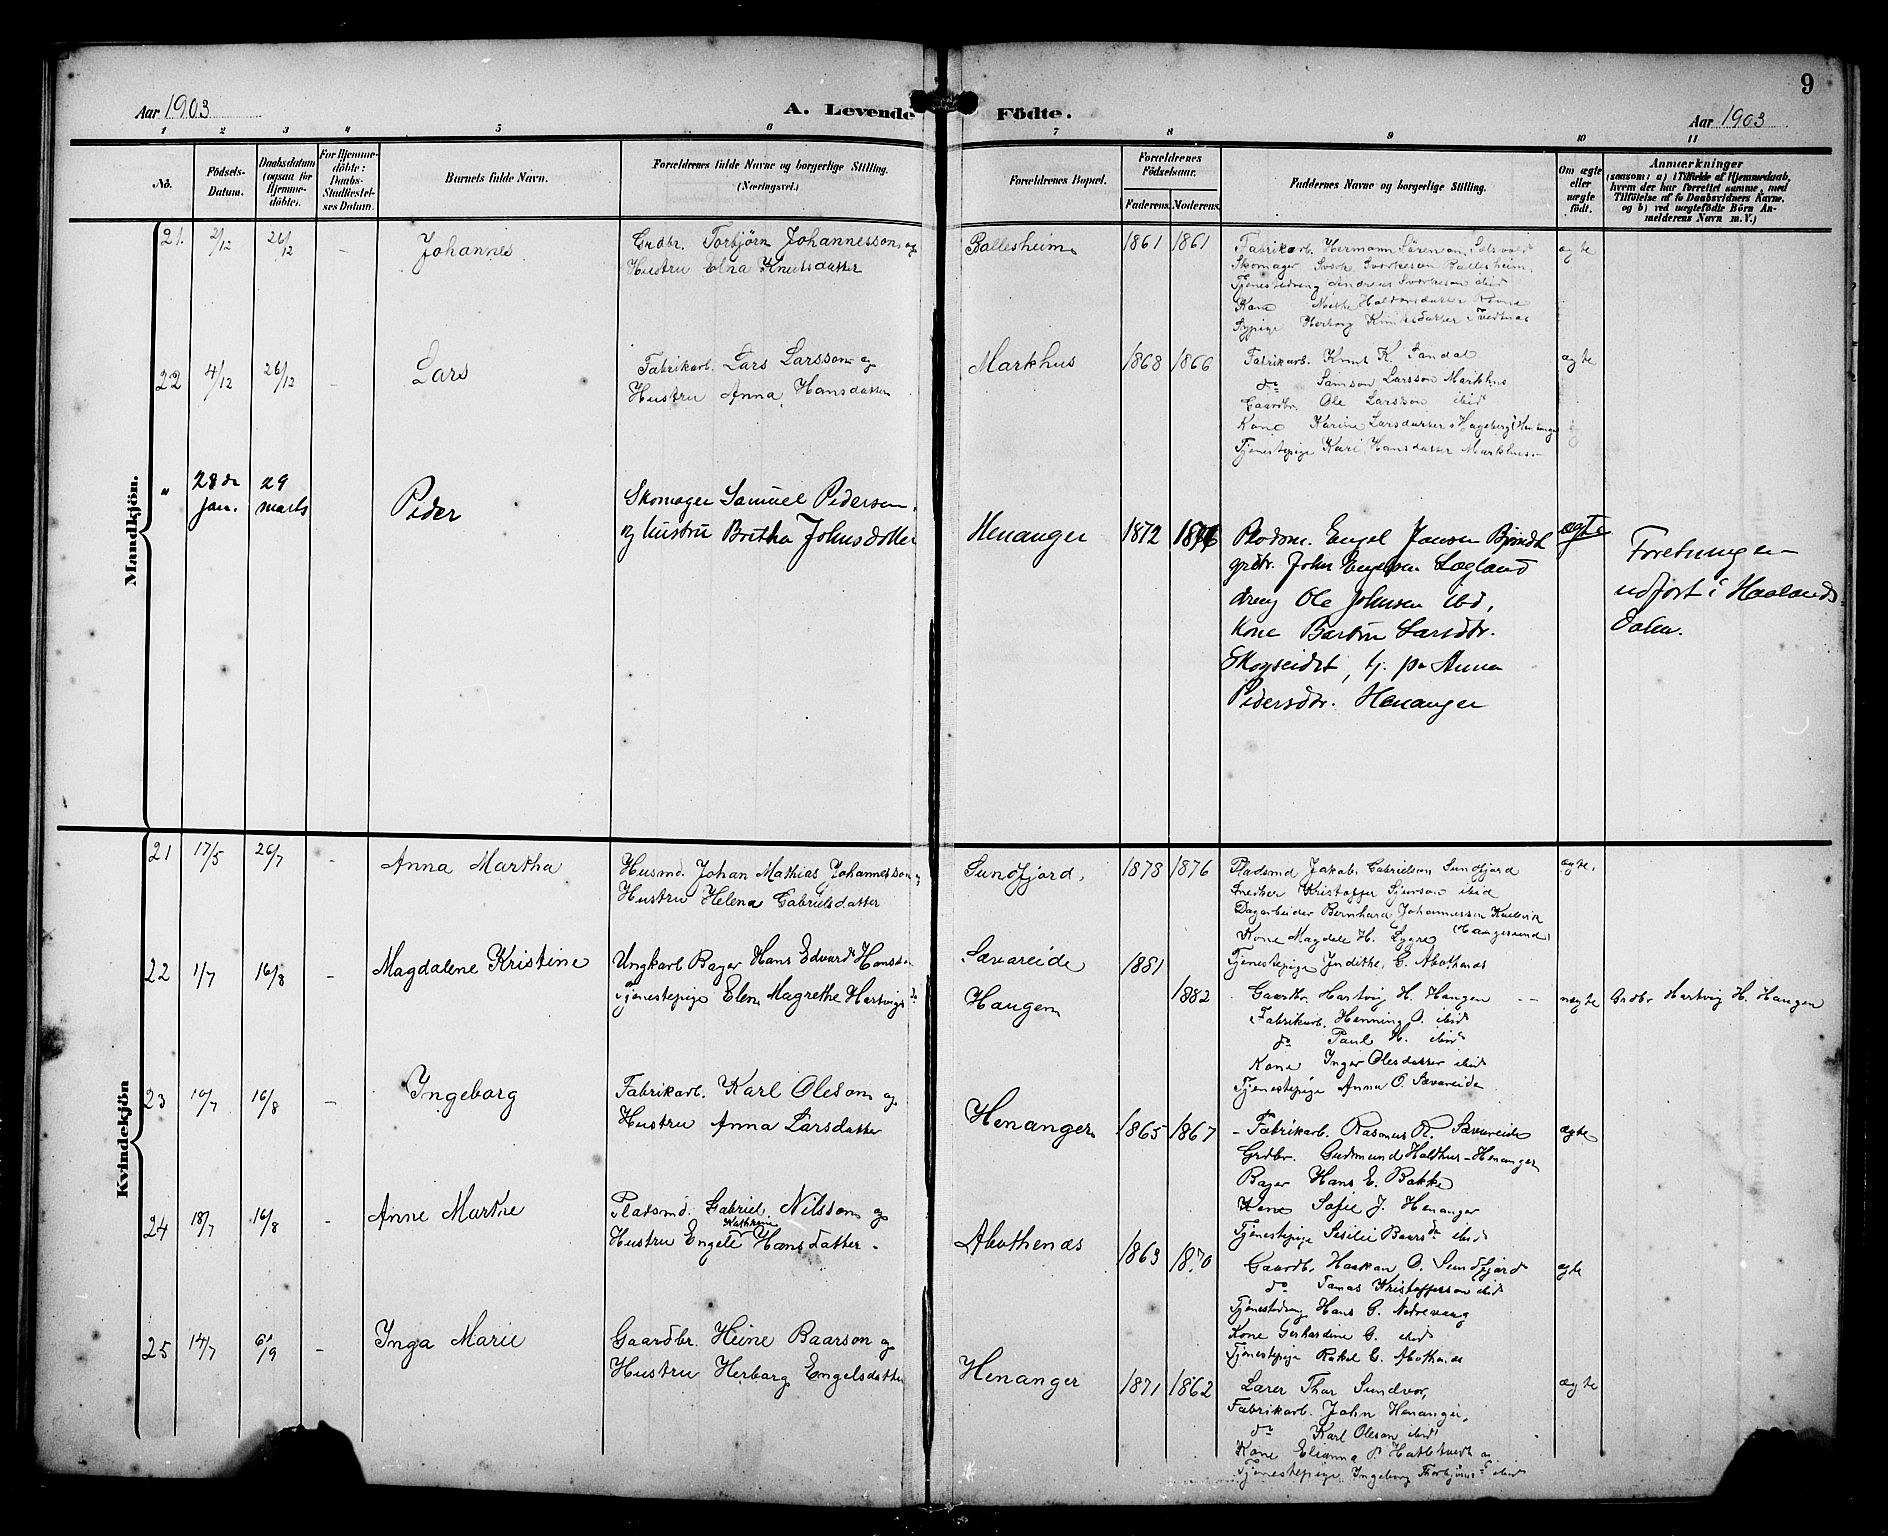 Aar 1903
A. Levende Födte.
Aar 1903
9
1 2 3 4 5 6 7 8 9 10 11
No.
Födsels-Datum.
Daabsdatum (ogsaa for Hjemme-döbte).
For Hjemme-döbte: Daabs-Stadfæstel-ses Datum.
Barnets fulde Navn.
Forældrenes fulde Navne og borgerlige Stilling.
(Næringsvei.)
Forældrenes Bopæl.
Forældrenes Födselsaar.
Faderens. Moderens.
Faddernes Navne og borgerlige Stilling.
Om ægte eller uægte födt.
Anmærkninger
(saasom: a) i Tilfælde af Hjemmedaab,
hvem der har forrettet samme, med
Tilföielse af to Daabsvidners Navne,
og b) ved uægtefödte Börn An-
melderens Navn m. V.)
Mandkjön.
21. 2/12 26/12 - Johannes
Grdbr. Torbjörn Johannesson og
Hustru Elna Knutsdatter
Ballesheim 1861 1861
Fabrikarb. Hermann Sörensen
Skomager Sverke Sverkeson Ballesheim
Tjenestedreng Andreas Sverkeson ibid
Kone Haldorsdatter
Sypige Herborg Knutsdatter Tvedtnæs
ægte
22 4/12 26/12 - Lars
Fabrikarb. Lars Larsson og
Hustru Anna Hansdatter
Markhus 1868 1866
Fabrikarb. Knut K. Sandal
do Samson Larsson Markhus
Gaardbr. Ole Larsson ibid
Kone Karine Larsdatter Hageberg (Henanger)
Tjenestepige Kari Hansdatter Markhus
ægte
" 28de jan. 29 marts Peder
Skomager Samuel Pedersen
og hustru Britha Johnsdotter
Henanger 1872 1876
Plodsm. Engel Jansen
grdbr. John Engelsen Lægland
dreng Ole Johnsen ibd,
Kone Larsdtr.
Skogseidet, tj. pe Anna
Pedersdtr. Henanger
ægte
Foretningen
udfört i Haalands-
dalen.
Kvindekjön
21 17/5 26/7 - Anna Martha
Husmd. Johan Mathias Johannesson og
Hustru Helena Gabrielsdatter
Sundfjord, 1878 1876
Pladsmd Jakob Gabrielson Sundfjord
Snedker Kristoffer Sjurson ibid
Dagarbeider Bernhard Johannesson
(Haugesund)
Kone Magdele H. Lygre
Tjenestepige Judithe G. Abothenæs
ægte.
22 1/7 16/8 - Magdalene Kristine
Ungkarl Bager Hans Edvard Hansson
Tjenestepige Elen Magrethe Hartvigsdr
Sævareide 1881
Haugen 1882
Gaardbr. Hartvig H. Haugen
Fabrikarb. Henning O. ibid
do Paul H. ibid
Kone Inger Olesdatter ibid
Tjenestepige Anna O. Sævareide
uægte
Grdbr Hartvig H. Haugen
23 10/7 16/8 - Ingeborg
Fabrikarb. Karl Oleson og
Hustru Anna Larsdatter
Henanger 1865 1867
Fabrikarb. Rasmus R. Sævareide
Grdbr. Gudmund Holdhus-Henanger
Bager Hans E. Bakke
Kone Sofie J. Henanger
Tjenestepige Sesilie Baarsdr ibid
ægte
24 18/7 16/8 - Anne Marthe
Platsmd. Gabriel Nilsson og
Hustru Engele Kathrine Hansdatter
Abothenæs 1863 1870
Gaardbr. Haakon O. Sundfjord
do Tomas Kristofferson ibid
Tjenestedreng Hans G. Nedrevaag
Kone Gerhardine G. ibid
Tjenestepige Rakel G. Abothenæs
ægte
25 14/7 6/9 - Inga Marie
Gaardbr. Heine Baarson og
Hustru Herborg Engelsdatter
Henanger 1871 1862
Lærer Thor Sundvor,
Fabrikarb. John Henanger,
do Karl Oleson ibid
Kone Elianna P. Hatletvedt og
Tjenestepige Ingeborg Thorbjörnsd ibid
ægte